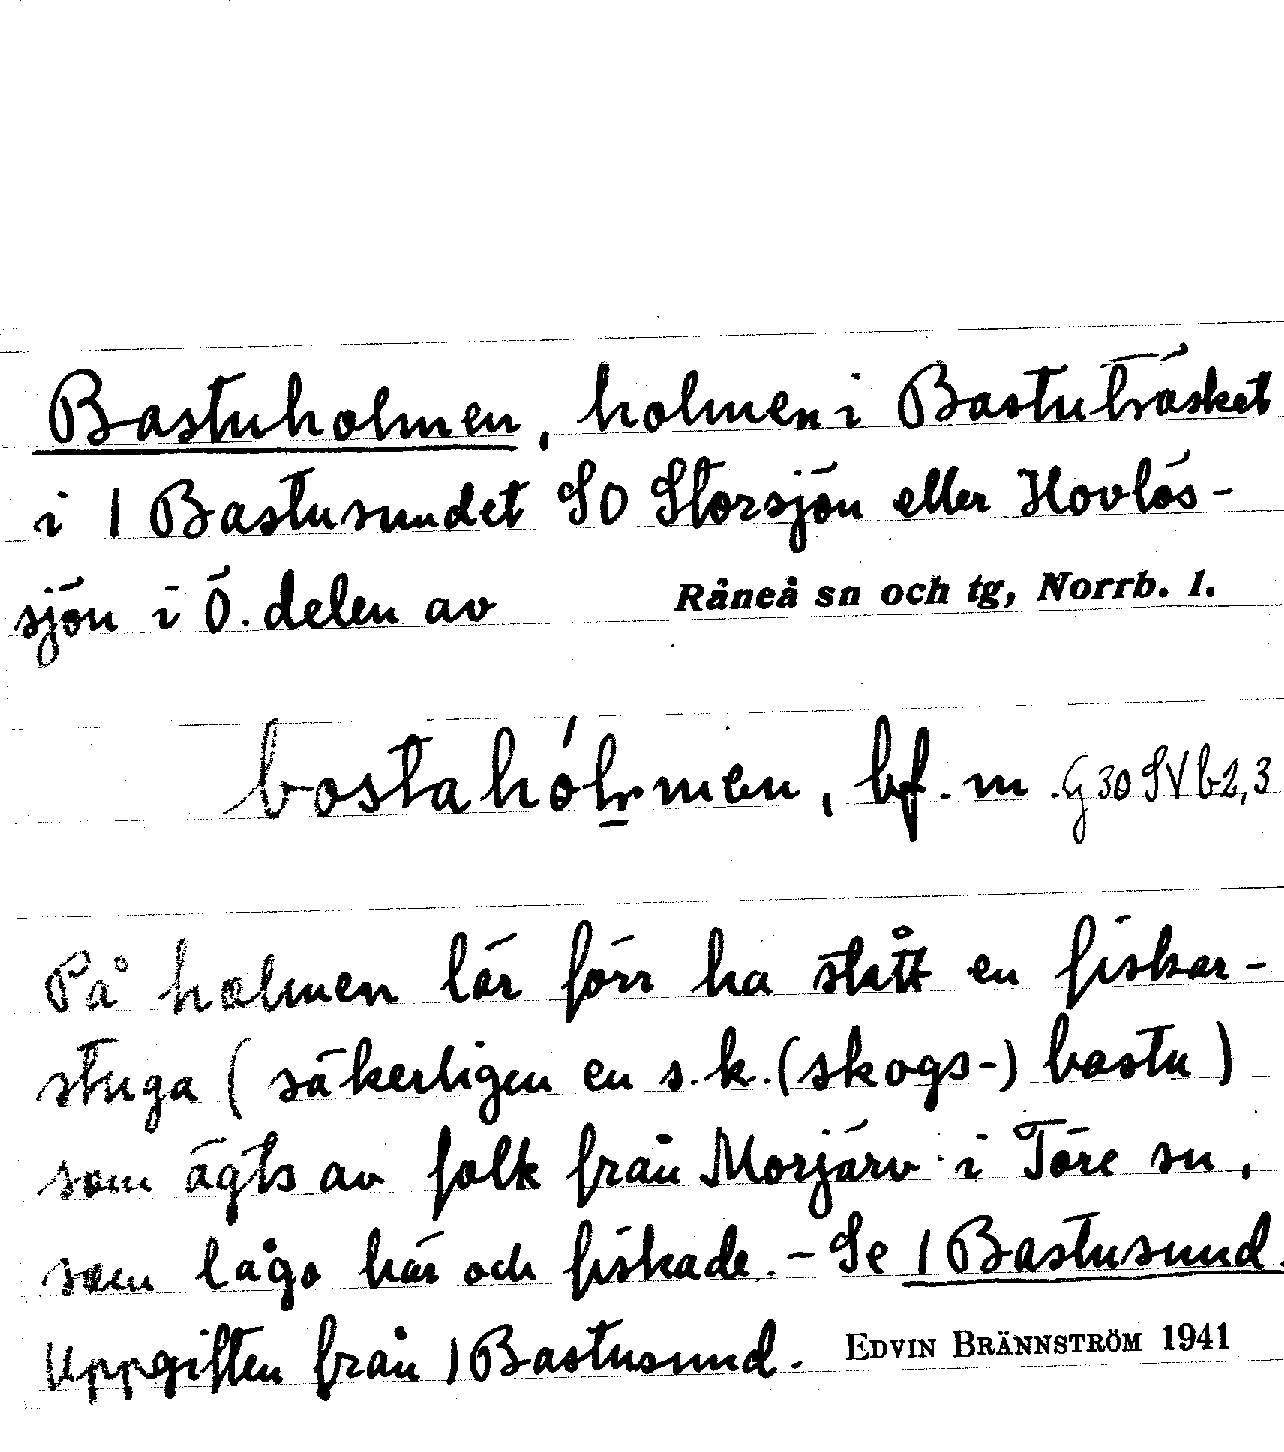 Bastuholmen, holmen i Bastuträsket
i 1 Bastusundet SO Storsjön eller Hovlös-
sjön i Ö. delen av Råneå sn och tg, Norrb. l.
bf. m. G30SVb2,3
På holmen lär förr ha stått en fiskar-
stuga (säkerligen en s.k. (skogs-) bastu)
som ägts av folk från Morjärv i Töre sn,
som lågo här och fiskade. - Se 1 Bastusund.
Uppgiften från 1 Bastusund. EDVIN BRÄNNSTRÖM 1941